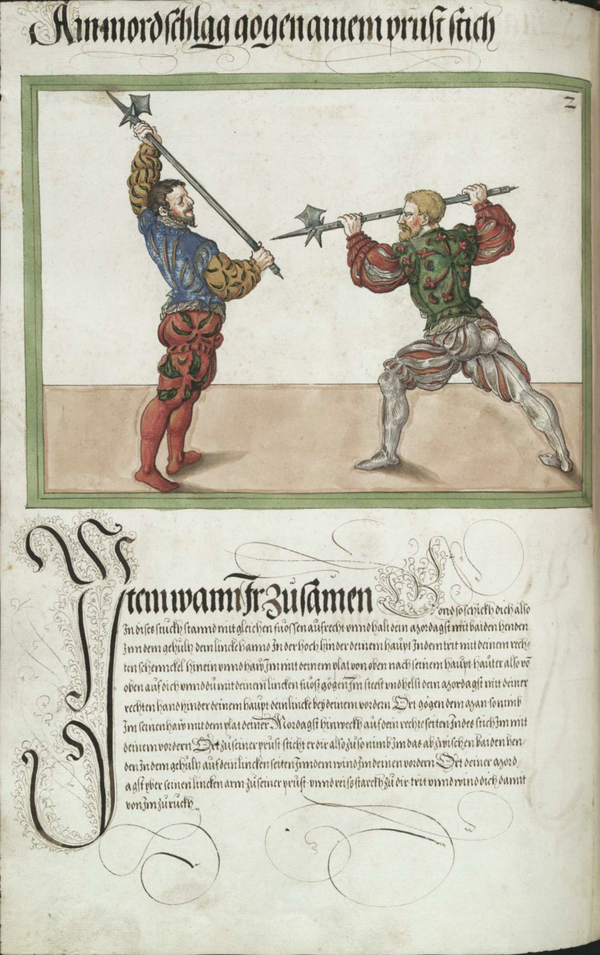 Ain mordschlag gogen ainem prust stich
2
Item wann Ir zusamen
gond so schickh dich also
In dises stuckh stannd mit gleichen fuossen aufrecht vnnd halt dein mordagst mit baiden henden
Inn dem gehultz dein linckh annd In der hoch hinder deinem haupt Inden trit mit deinem rech-
ten schennckel hinein vnnd haw Im mit deinem plat von oben nach seinem haupt hawt er also vo
oben auf dich vnnd du mit deinem lincken fuoss gogen Im steest vnd hellst dein mordagst mit deiner
rechten hannd hinder deinem haupt dein lincke bej deinem vordern Ort gogen dem man so nimb
Im seinen haw mit dem plat deiner Mordagst hinweckh auf dein rechte seiten Indes stich Im mit
deinem vordern Ort zu seiner prust sticht er dir also zu so nimb Im das ab zwischen baiden hen-
den In dem gehultz auf dein lincken seiten Inn dem wind Im deinen vordern Ort deiner mord
agst vber seinen lincken arm zu seiner prust vnnd reiss starckh zu dir trit vnnd wind dich damit
von Im zu ruckh